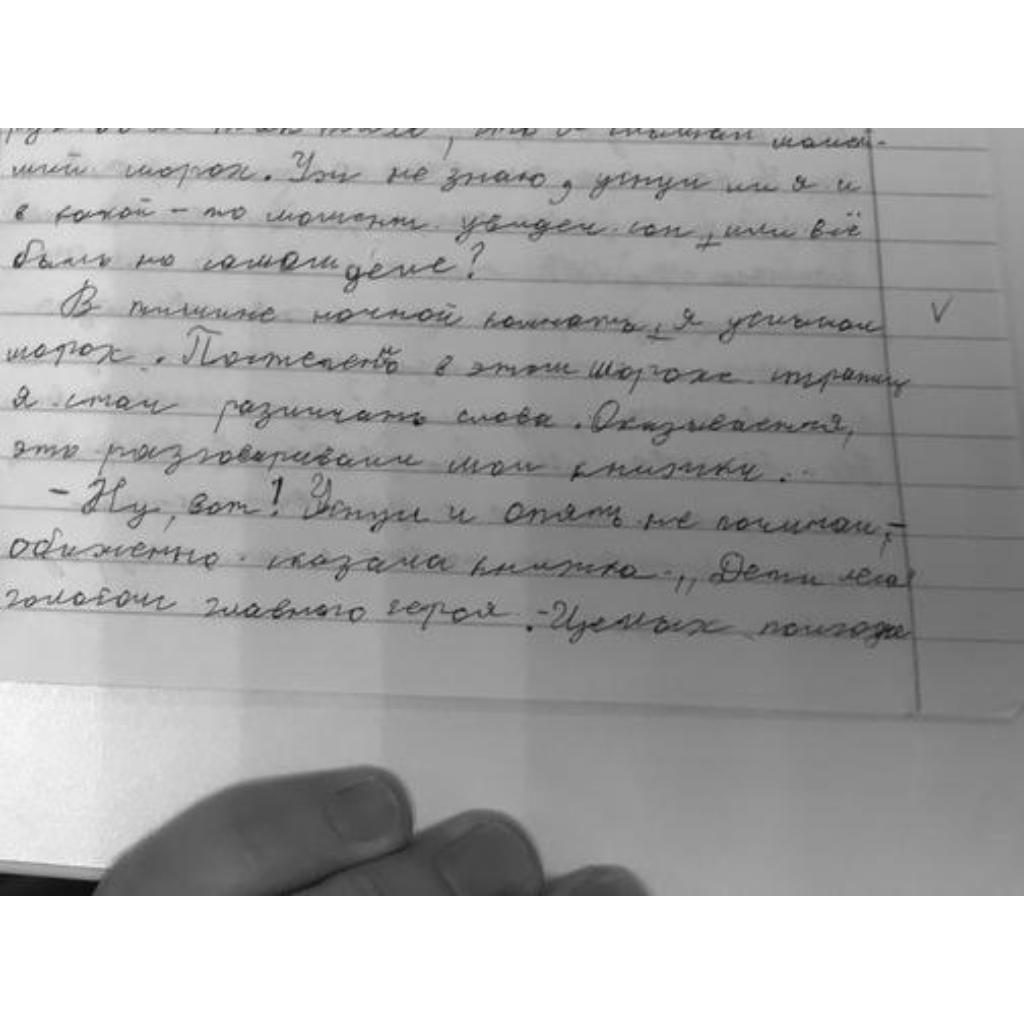 шорох. Уж не знаю, уснул ли я и
в какой-то момент увидел сон, или всё
было на самом деле?
В тишине ночной комнаты, я услышал
шорох. Постепенно в этом шорохе страниц
я стал различать слова. Оказывается,
это разговаривали мои книжки.
- Ну, вот! Уснул и опять не почитал, -
обиженно сказала книжка „Дети
голосом главного героя. - Целых полгода